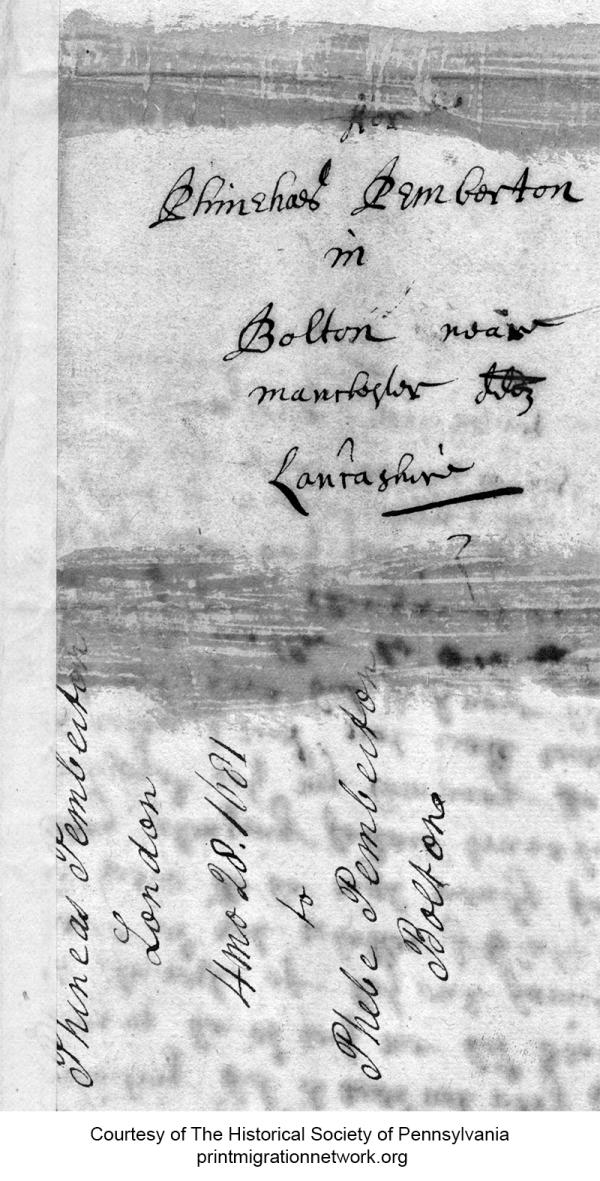 ffor
Phinehas Pemberton
in
Bolton near
manchester
Lancashire
Phineas Pemberton
London
4mo 28. 1681
to
Phebe Pemberton
Bolton
Courtesy of The Historical Society of Pennsylvania
printmigrationnetwork.org